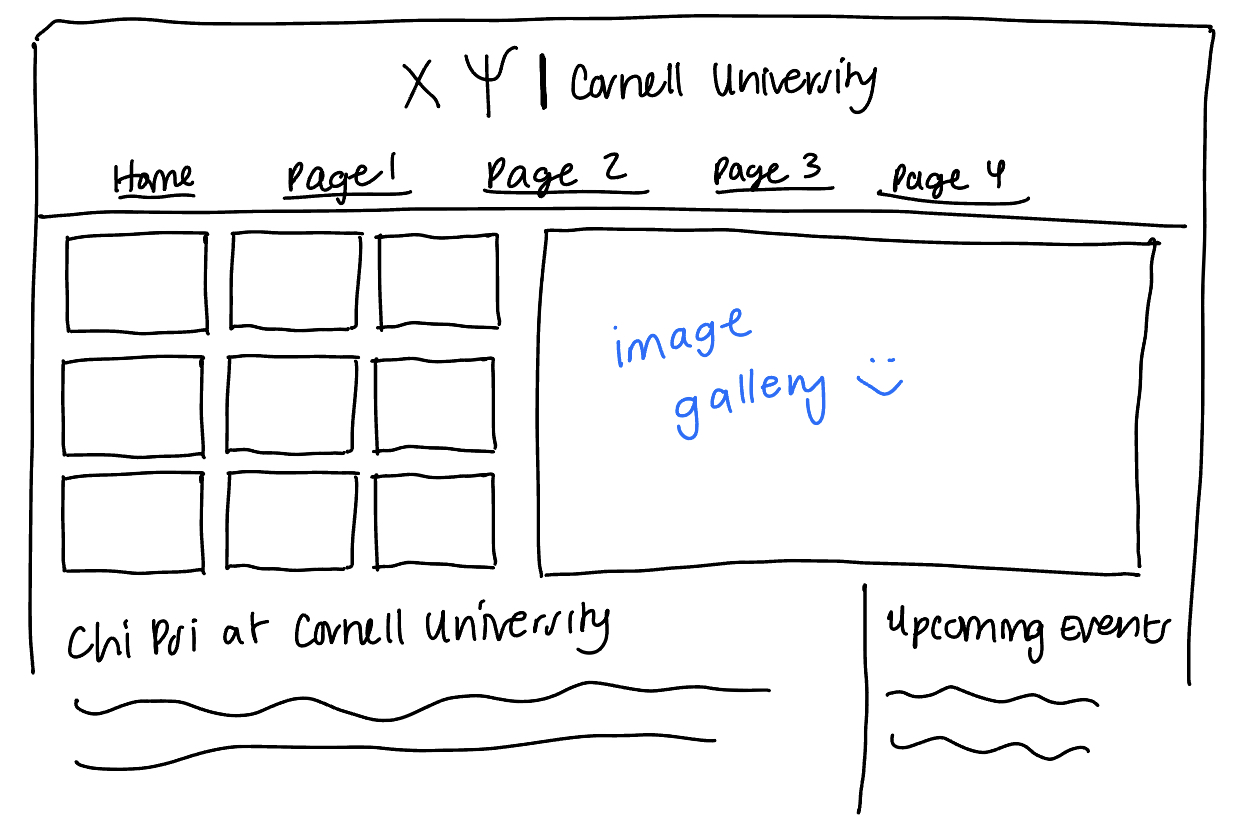 Χ Ψ | Cornell University
Home Page 1 Page 2 Page 3 Page 4
image
gallery :)
Chi Psi at Cornell University
Upcoming Events